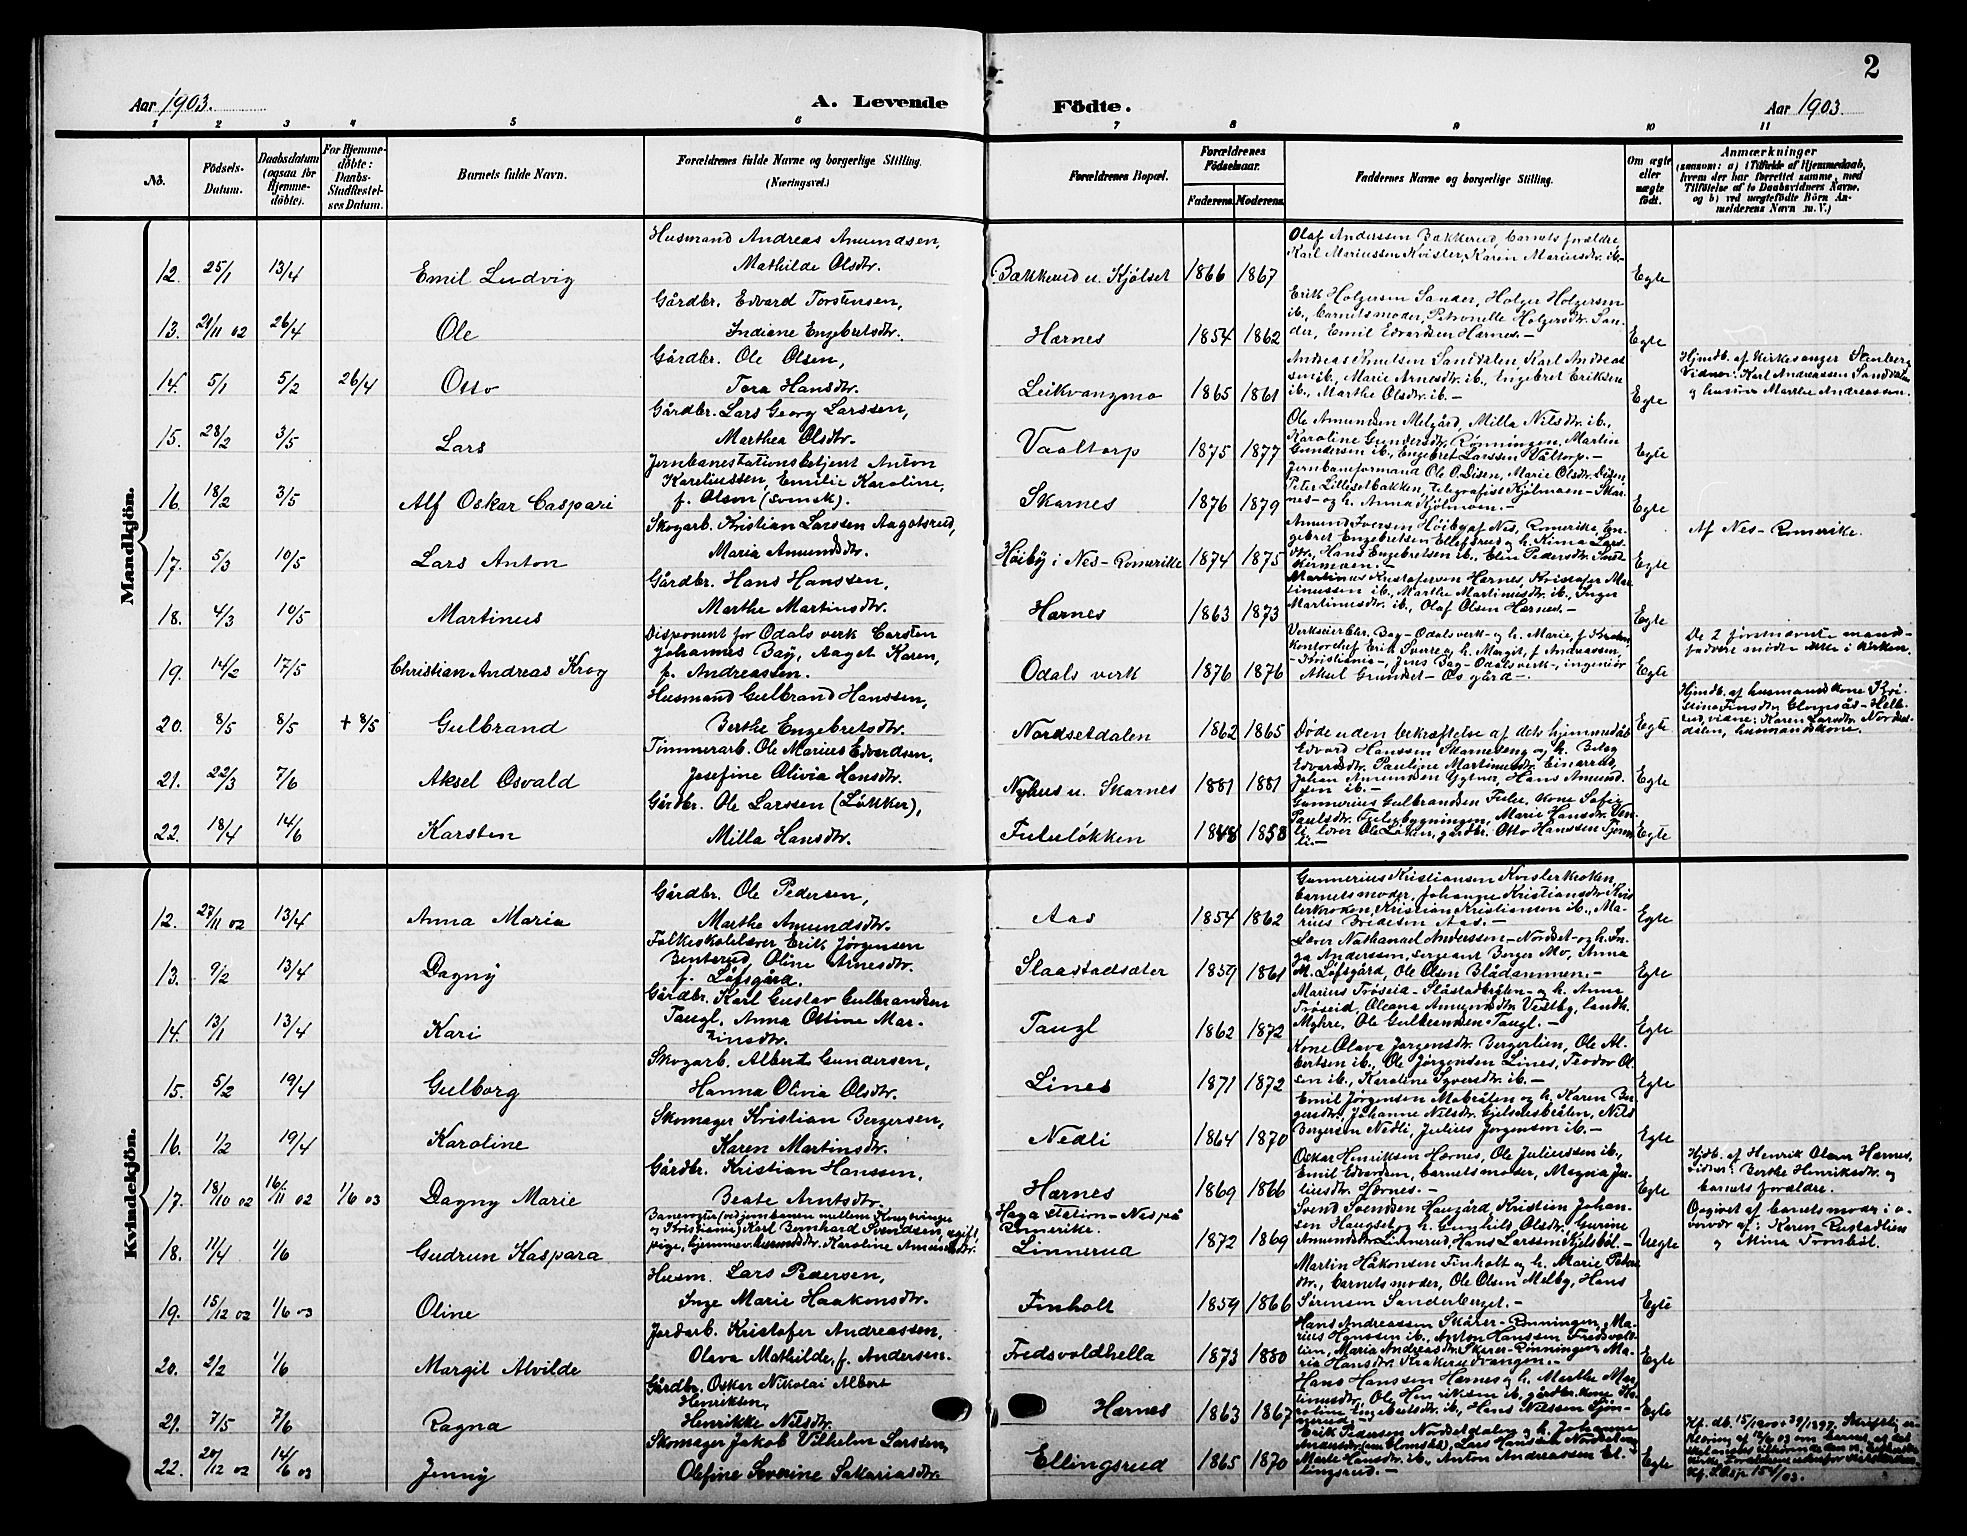 2
Aar 1903.
A. Levende
Födte.
Aar 1903
1 2 3 4 5 6 7 8 9 10 11
No.
Födsels-
Datum.
Daabsdatum
(ogsaa for
Hjemme-
döbte).
For Hjemme-
döbte:
Daabs-
Stadfæstel-
ses Datum.
Barnets fulde Navn.
Forældrenes fulde Navne og borgerlige Stilling.
(Næringsvei.)
Forældrenes Bopæl.
Forældrenes
Födselsaar.
Faderens.
Moderens.
Faddernes Navne og borgerlige Stilling.
Om ægte
eller
uægte
födt.
Anmærkninger
(saasom: a) i Tilfælde af Hjemmedaab,
hvem der har forrettet samme, med
Tilföielse af to Daabsvidners Navne,
og b) ved uægtefödte Börn An-
melderens Navn m. V.)
Mandkjön.
12. 25/1 13/4 Emil Ludvig
Husmand Andreas Amundsen,
Mathilde Olsdtr.
Bakkerud u. Kjölset 1866 1867
Olaf Anderssen Bakkerud, barnets forældre,
Karl Mariussen Kvisler, Karen Mariusdtr. ib.-
Egte
13. 21/11 02 26/4 Ole
Gårdbr. Edvard Torstensen,
Indiane Engebretsdtr.
Hærnes 1854 1862
Erik Holgersen Sander, Holger Holgersen
ib., barnets moder, Petronelle Holgersdtr. San-
der, Emil Edvardsen Hærnes.-
Egte
14. 5/1 5/2 26/4 Otto
Gårdbr. Ole Olsen,
Tora Hansdtr.
Leikvangmo 1865 1861
Andreas Knutsen Sanddalen, Karl Andreas-
sen ib., Marie Arnesdtr. ib., Engebret Eriksen
ib., Marthe Olsdtr. ib.-
Egte
Hjmdb. af Kirkesanger Stenberg,
Vidner: Karl Andreassen Sanddalen
og hustru Marthe Andreassen.
15. 28/2 3/5 Lars
Gårdbr. Lars Georg Larssen,
Marthea Olsdtr.
Vaaltorp 1875 1877
Ole Amundsen Melgård, Milla Nilsdtr. ib.,
Karoline Gundersdtr. Rønningen, Martin
Gundersen ib., Engebret Larssen Valtorp.-
Egte
16. 18/2 3/5 Alf Oskar Caspari
Jernbanestationsbetjent Anton
Kareliussen, Emilie Karoline,
f. Olson (svensk).
Skarnes 1876 1879
Jernbaneformand Ole O. Disen, Marie Olsdtr. Disen,
Peter Lillesetbakken, Telegrafist Kjølmoen - Skar-
nes - og h. Anna Kjølmoen.-
Egte
17. 5/3 10/5 Lars Anton
Skogarb. Kristian Larssen Aagotsrud,
Maria Amundsdtr.
Höiby i Nes-Romerike 1874 1875
Amund Iversen Höiby af Nes, Romerike, En-
gebret Engebretsen Ellefsrud og h. Kinna Lars-
dtr., Hans Engebretsen ib., Elin Pedersdtr.
Egte
Af Nes-Romerike.
18. 4/3 10/5 Martinus
Gårdbr. Hans Hanssen,
Marthe Martinsdtr.
Hærnes 1863 1873
Martinus Kristofersen Hærnes, Kristofer Mar-
tinussen ib., Marthe Martinusdtr. ib., Inger
Martinusdtr. ib., Olaf Olsen Hærnes.-
Egte
19. 14/2 17/5 Christian Andreas Krog
Disponent for Odals verk Carsten
Johannes Bay, Aaget Karen,
f. Andreassen.
Odals verk 1876 1876
Verkseier Chr. Bay - Odals verk - og h. Marie, f.
kontorchef Erik Sparre og h. Margit, f. Andreassen,
- Kristiania -, Jens Bay - Odals verk -, ingeniør
Aksel Grundset - Os gård -.
Egte
De 2 förstnævnte mand-
faddere mødte ikke i kirken.
20. 8/5 8/5 + 8/5 Gulbrand
Husmand Gulbrand Hanssen,
Berthe Engebretsdtr.
Nordsetdalen 1862 1865
Døde uden bekræftelse af dets hjemmedåb
Egte
Hjmdb. af husmandskone Kri-
stine Finsdtr. Glomsås - Helle-
rud, vidne: Karen Larsdtr. Nordset-
dalen, husmandskone.
21. 22/3 7/6 Aksel Osvald
Tömmerarb. Ole Marius Edvardsen,
Josefine Olivia Hansdtr.
Nyhus u. Skarnes 1881 1881
Edvard Hanssen Skarneseng og h. Beleg
Edvardsdtr., Pauline Martinusdtr. Einarrud,
Johan Amundsen Ygtner, Hans Amund-
sen ib.-
Egte
22. 18/4 14/6 Karsten
Gårdbr. Ole Larssen (Løkker),
Milla Hansdtr.
Fuleløkken 1848 1858
Gunnerius Gulbrandsen Fule, kone Sofie
Paulsdtr. Fulebygningen, Marie Hansdtr.
lærer Ole Løken, gårdbr. Otto Hanssen
Egte
Kvindekjön.
12. 27/11 02 13/4 Anna Maria
Gårdbr. Ole Pedersen,
Marthe Amundsdtr.
Aas 1854 1862
Gunnerius Kristiansen Kvislerkroken,
barnets moder, Johanne Kristiansdtr. Kvis-
lerkroken, Kristian Kristiansen ib., Ma-
rius Bredesen Aas.-
Egte
13. 9/2 13/4 Dagny
Folkeskolelærer Erik Jørgensen
Benterud, Oline Arnesdtr.
f. Løfsgård.
Slaastadsæter 1859 1861
Lærer Nathanael Anderssen - Nordset - og h. In-
ga Anderssen, sergeant Berger Mo, Anna
M. Løfsgård, Ole Olsen Blådammen.-
Egte
14. 13/1 13/4 Kari
Gårdbr. Karl Gustav Gulbrandsen
Taugl, Anna Ottine Mar-
tinsdtr.
Taugl 1862 1872
Marius Trøseid - Slåstadbråten - og h. Anna
Trøseid, Oleana Amundsdtr. Vestby, landh.
Myhre, Ole Gulbrandsen Taugl.-
Egte
15. 5/2 19/4 Gulborg
Skogarb. Albert Gundersen,
Hanna Olivia Olsdtr.
Lines 1871 1872
Kone Olava Jørgensdtr. Bergerlien, Ole Al-
bertsen ib., Ole Jørgensen Lines, Teodor Ol-
sen ib., Karoline Syversdtr. ib.-
Egte
16. 1/2 19/4 Karoline
Skomager Kristian Bergersen,
Karen Martinsdtr.
Nedli 1864 1870
Emil Jørgensen Mobråten og h. Karen Ber-
gersdtr., Johanne Nilsdtr. Gjelsnesbråten, Nils
Bergersen Nedli, Julius Jørgensen ib.-
Egte
17. 18/10 02 16/11 02 1/6 03 Dagny Marie
Gårdbr. Kristian Hanssen,
Beate Arntsdtr.
Hærnes 1869 1866
Oskar Henriksen Hærnes, Ole Juliussen ib.,
Emil Edvardsen, barnets moder, Magna Ju-
liusdtr. Hærnes.-
Egte
Hjdb. af Henrik Olsen Hærnes,
Vidner: Berthe Henriksdtr. og
barnets forældre.
18. 11/4 1/6 Gudrun Kaspara
Banevogter (ved jernbanen mellem Kongsvinger
og Kristiania) Karl Bernhard Svendsen, ugift,
pige, hjemmev. Karoline Amundsdtr.
Haga station - Nes på
Romerike.
Linnerud 1872 1869
Svend Svendsen Haugård, Kristian Johan-
sen Haugset og h. Gunhild Olsdtr., Gurine
Amundsdtr. Linnerud, Hans Larssen Kjelsböl.-
Uegte
Opgivet af barnets moder i o-
vervær af: Karen Rustadlien
og Mina Trønböl.
19. 15/12 02 1/6 03 Oline
Husm. Lars Pedersen,
Inge Marie Haakonsdtr.
Finholt 1859 1866
Martin Håkonsen Finholt og h. Marie Peders-
dtr., barnets moder, Ole Olsen Melby, Hans
Sörensen Sanderberget.-
Egte
20. 2/2 1/6 Margit Alvilde
Jordarb. Kristofer Andreassen,
Olava Mathilde, f. Andersen.
Fredsvoldhella 1873 1880
Hans Andreassen Skårer-Rønningen, Ma-
rius Hanssen ib., Anton Hanssen Fredsvold-
lien, Maria Andreasdtr. Skårer-Rønningen, Ma-
ria Hansdtr. Krakerudvangen.-
Egte
21. 7/5 7/6 Ragna
Gårdbr. Oskar Nikolai Albert
Henriksen,
Henrikke Nilsdtr.
Hærnes 1863 1867
Hans Hanssen Hærnes og h. Marthe Mar-
tinusdtr., Ole Henriksen ib., gårdbr.kone Ka-
roline Engebretsdtr. ib., Hans Nilssen
Egte
22. 20/12 02 14/6 03 Jenny
Skomager Jakob Vilhelm Larssen,
Olefine Severine Sakariasdtr.
Ellingsrud 1865 1870
Erik Pedersen Nordsetdalen og h. Johanne
Andersdtr. Lars Hanssen Nordsetdalen,
Marte Hansdtr. ib., Anton Andreassen El-
lingsrud.-
Egte